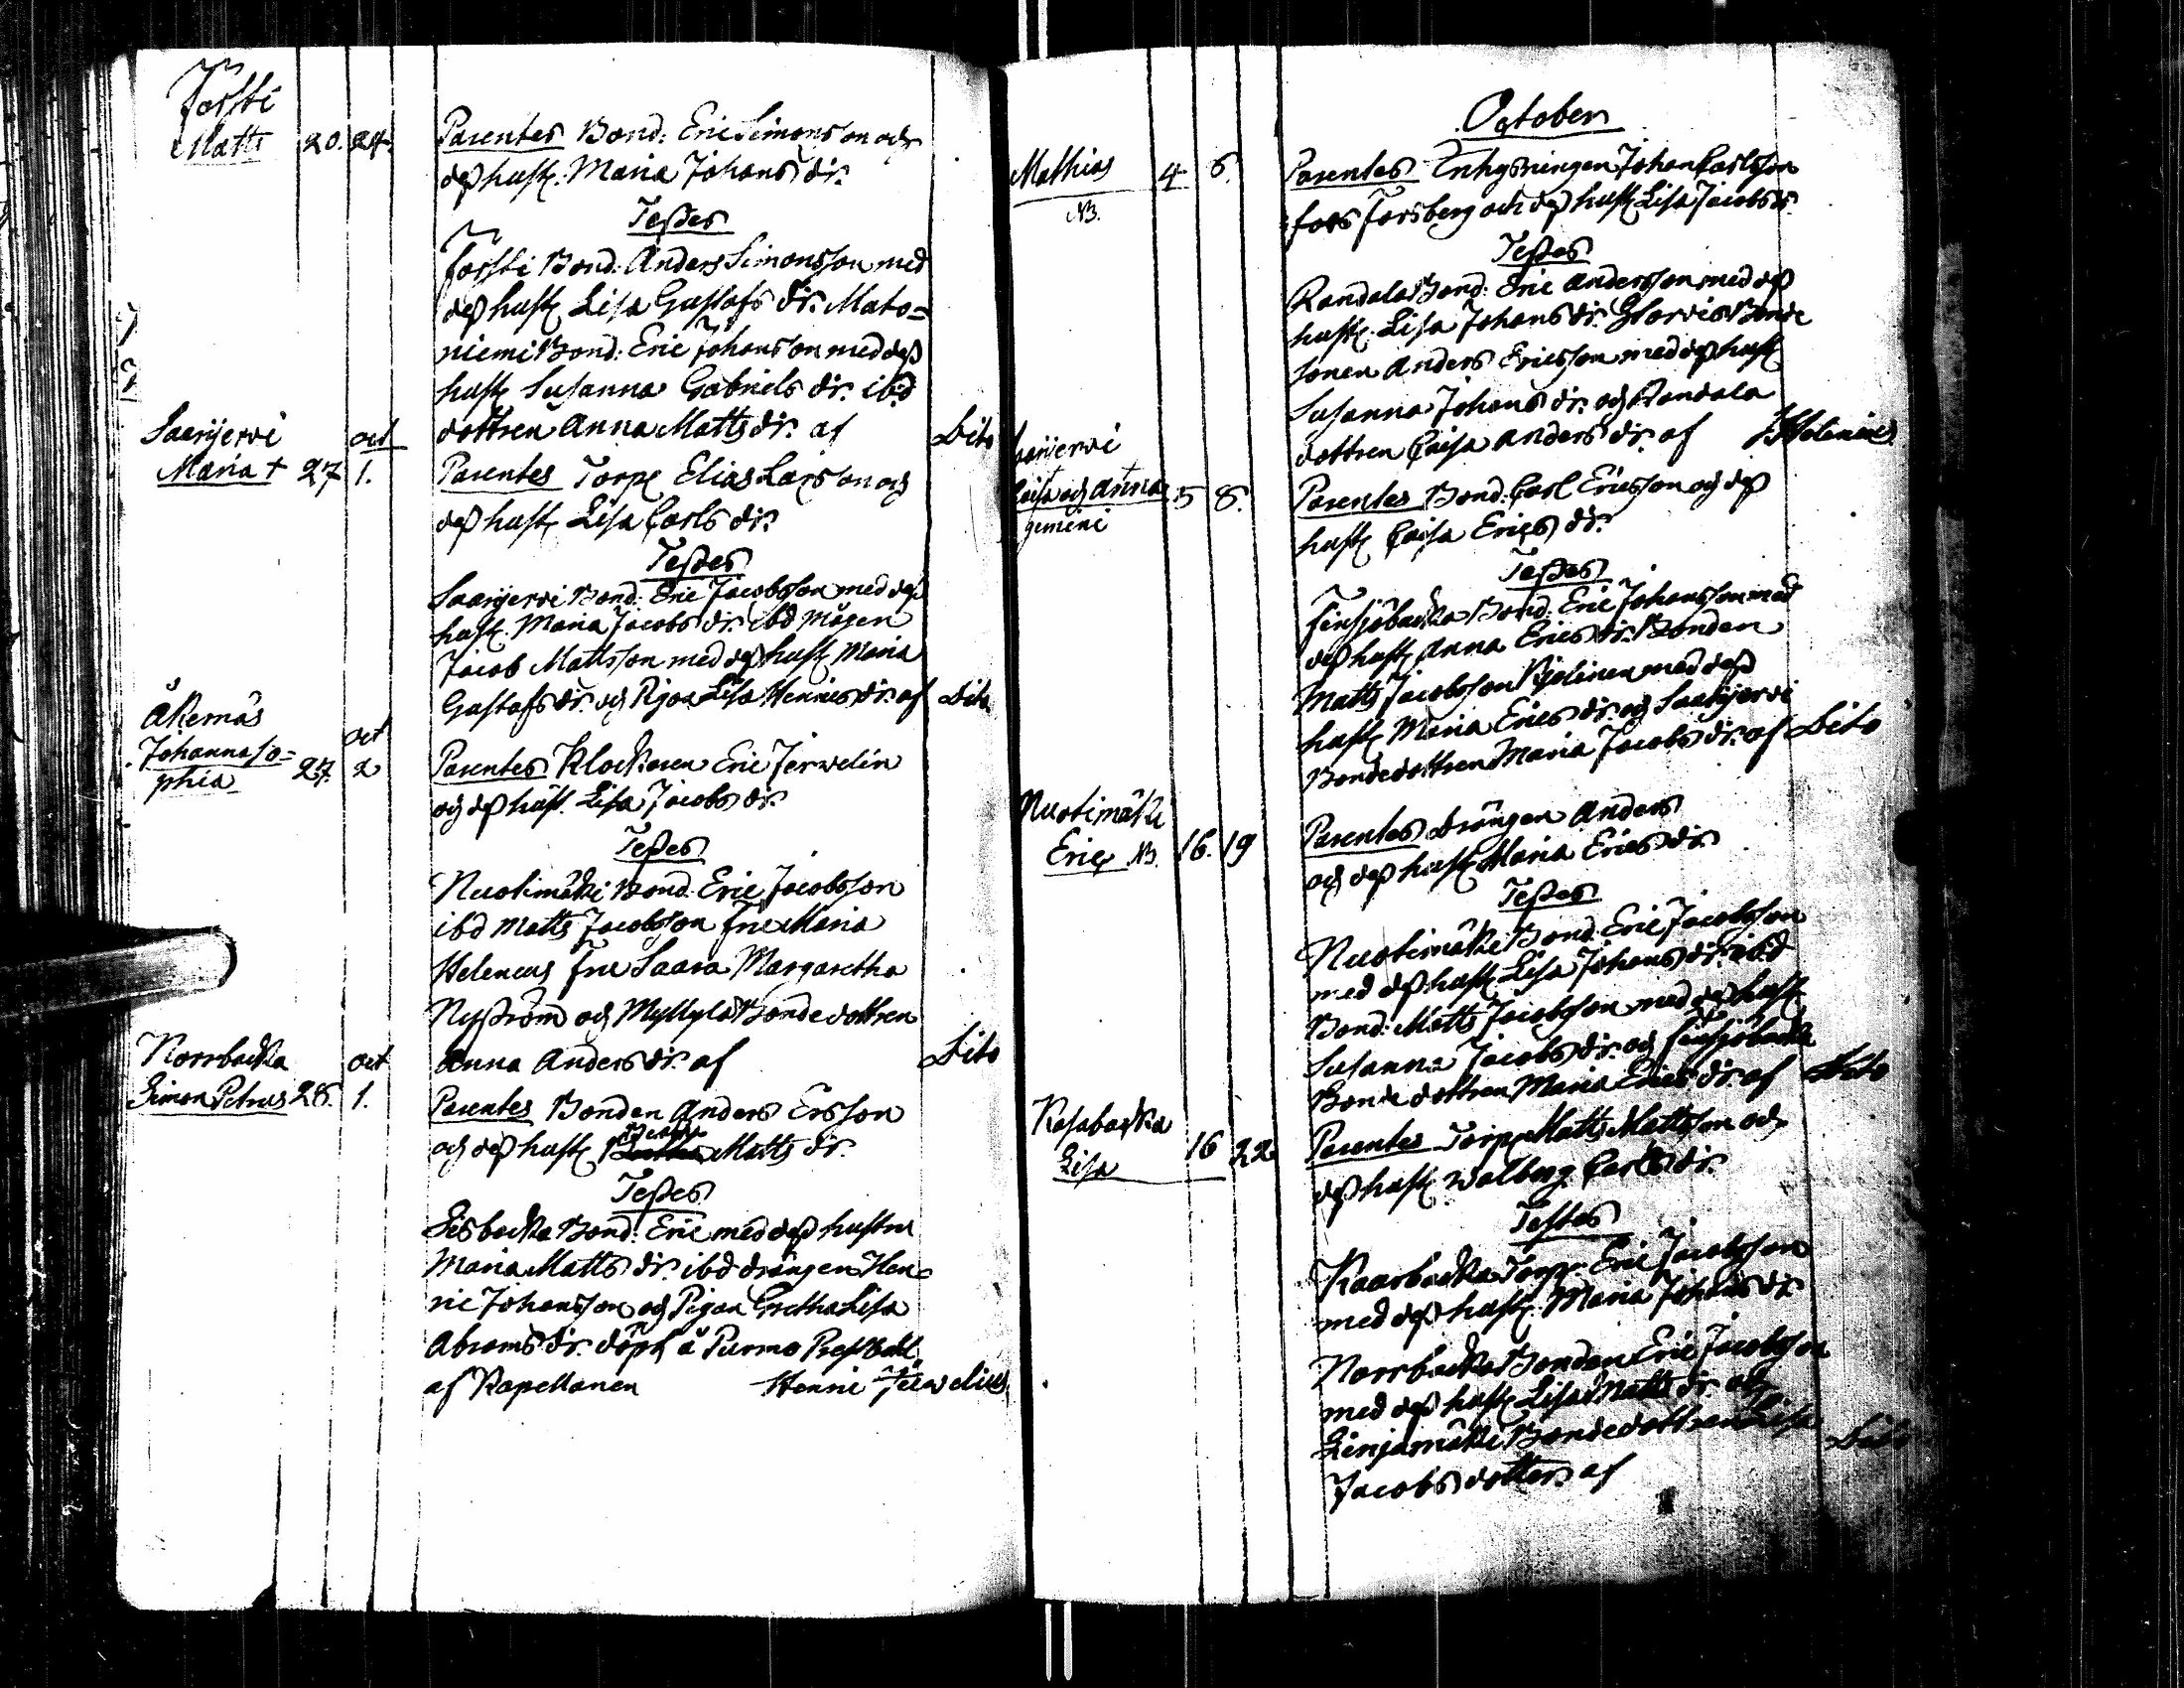 Forsti
Matts 20. 24. Parentes Bond: Eric Simonsson och
dess hust. Maria Johans dr.
Testes
Forsti Bond: Anders Simonsson med
dess hust. Lisa Gustafs dr. Mato=
niemi Bond: Eric Johansson med dess
hust. Susanna Gabriels dr. ibd
dottren Anna Matts dr. af Dito
Saarijervi oct
Maria + 27 1. Parentes Torp. Elias Larsson och
dess hust. Lisa Carls dr.
Testes
Saarijervi Bond: Eric Jacobsson med dess
hust. Maria Jacobs dr. ibd Mågen
Jacob Mattsson med dess hust. Maria
Gustafs dr. och Pigan Lisa Henrics dr. af Dito
Åkernäs oct
Johanna So=
phia 27. 2 Parentes Klockaren Eric Jerwelin
och dess hust. Lisa Jacobs dr.
Testes
Nuotimäki Bond: Eric Jacobsson
ibd Matts Jacobsson Fru Maria
Heleneus Fru Saara Margaretha
Nyström och Myllylä Bondedottren
Anna Anders dr. af Dito
Norrbacka oct
Simon Petrus 28. 1. Parentes Bonden Anders Ersson
och dess hust. Matts dr.
Testes
Sisbacka Bond: Eric med dess hustru
Maria Matts dr. ibd drängen Hen=
ric Johansson och Pigan Gretha Lisa
Abrams dr. döpt å Purmo Prestbohl
af Kapellanen Henric Jerwelius
October
Mathias 4 6. Parentes Inhysningen Johan Carlsson
Forsberg och dess hust. Lisa Jacobs dr.
NB.
Testes
Randala Bond: Eric Andersson med dess
hust. Lisa Johans dr. Bonde
sonen Anders Ericsson med dess hust.
Susanna Johans dr. och Randala
dottren Caisa Anders dr. af J Heleneus
Saarijervi
Caisa och Anna 5 8. Parentes Bond: Carl Ericsson och dess
gemini
hust. Caisa Erics dr.
Testes
Finsjöbacka Bond: Eric Johansson med
dess hust. Anna Erics dr. Bonden
Matts Jacobsson med dess
hust. Maria Erics dr. och Saarijervi
Bondedottren Maria Jacobs dr. af Dito
Nuotimäki
Eric NB. 16. 19 Parentes Drängen Anders
och dess hust. Maria Erics dr.
Testes
Nuotimäki Bond: Eric Jacobsson
med dess hust. Lisa Johans dr. ibd
Bond: Matts Jacobsson med dess hust.
Susanna Jacobs dr. och Finsjöbacka
Bondedottren Maria Erics dr. af Dito
Kasabacka
Lisa 16 22 Parentes Torp. Matts Mattsson och
dess hust. Walborg Carls dr.
Testes
Kaarbacka Torp. Eric Jacobsson
med dess hust. Maria Johans dr.
Norrbacka Bonden Eric Jacobsson
med dess hust. Lisa Matts dr. och
Linjamäki Bondedottren Lisa
Jacobsdotter. af Dito